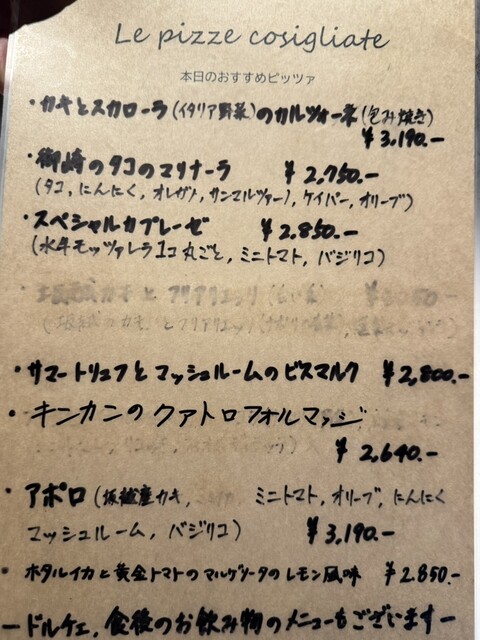 Le pizze cosigliate
本日のおすすめピッツァ
・カキとスカローラ(イタリア野菜)のカルツォーネ(包み焼き)
¥3,190.-
・御崎のタコのマリナーラ ¥2,750.-
(タコ, にんにく, オレガノ, サンマルツァーノ, ケイパー, オリーブ)
・スペシャルカプレーゼ ¥2.850.-
(水牛モッツァレラ1コ丸ごと, ミニトマト, バジリコ)
・サマートリュフとマッシュルームのビスマルク ¥2,800.-
・キンカンのクァトロフォルマッジ
¥2,640.-
・アポロ(坂越産カキ, ミニトマト, オリーブ, にんにく
マッシュルーム, バジリコ) ¥3,190.-
・ホタルイカと黄金トマトのマルゲリータのレモン風味 ¥2.850.-
ードルチェ, 食後のお飲み物のメニューもございますー